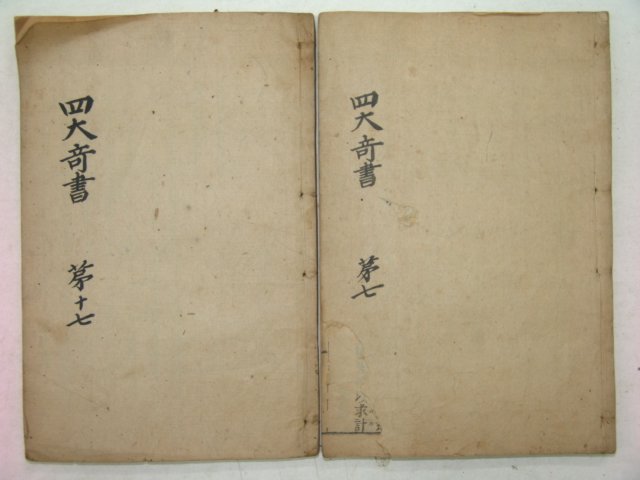 四大奇書 第十七
四大奇書 第七
求計